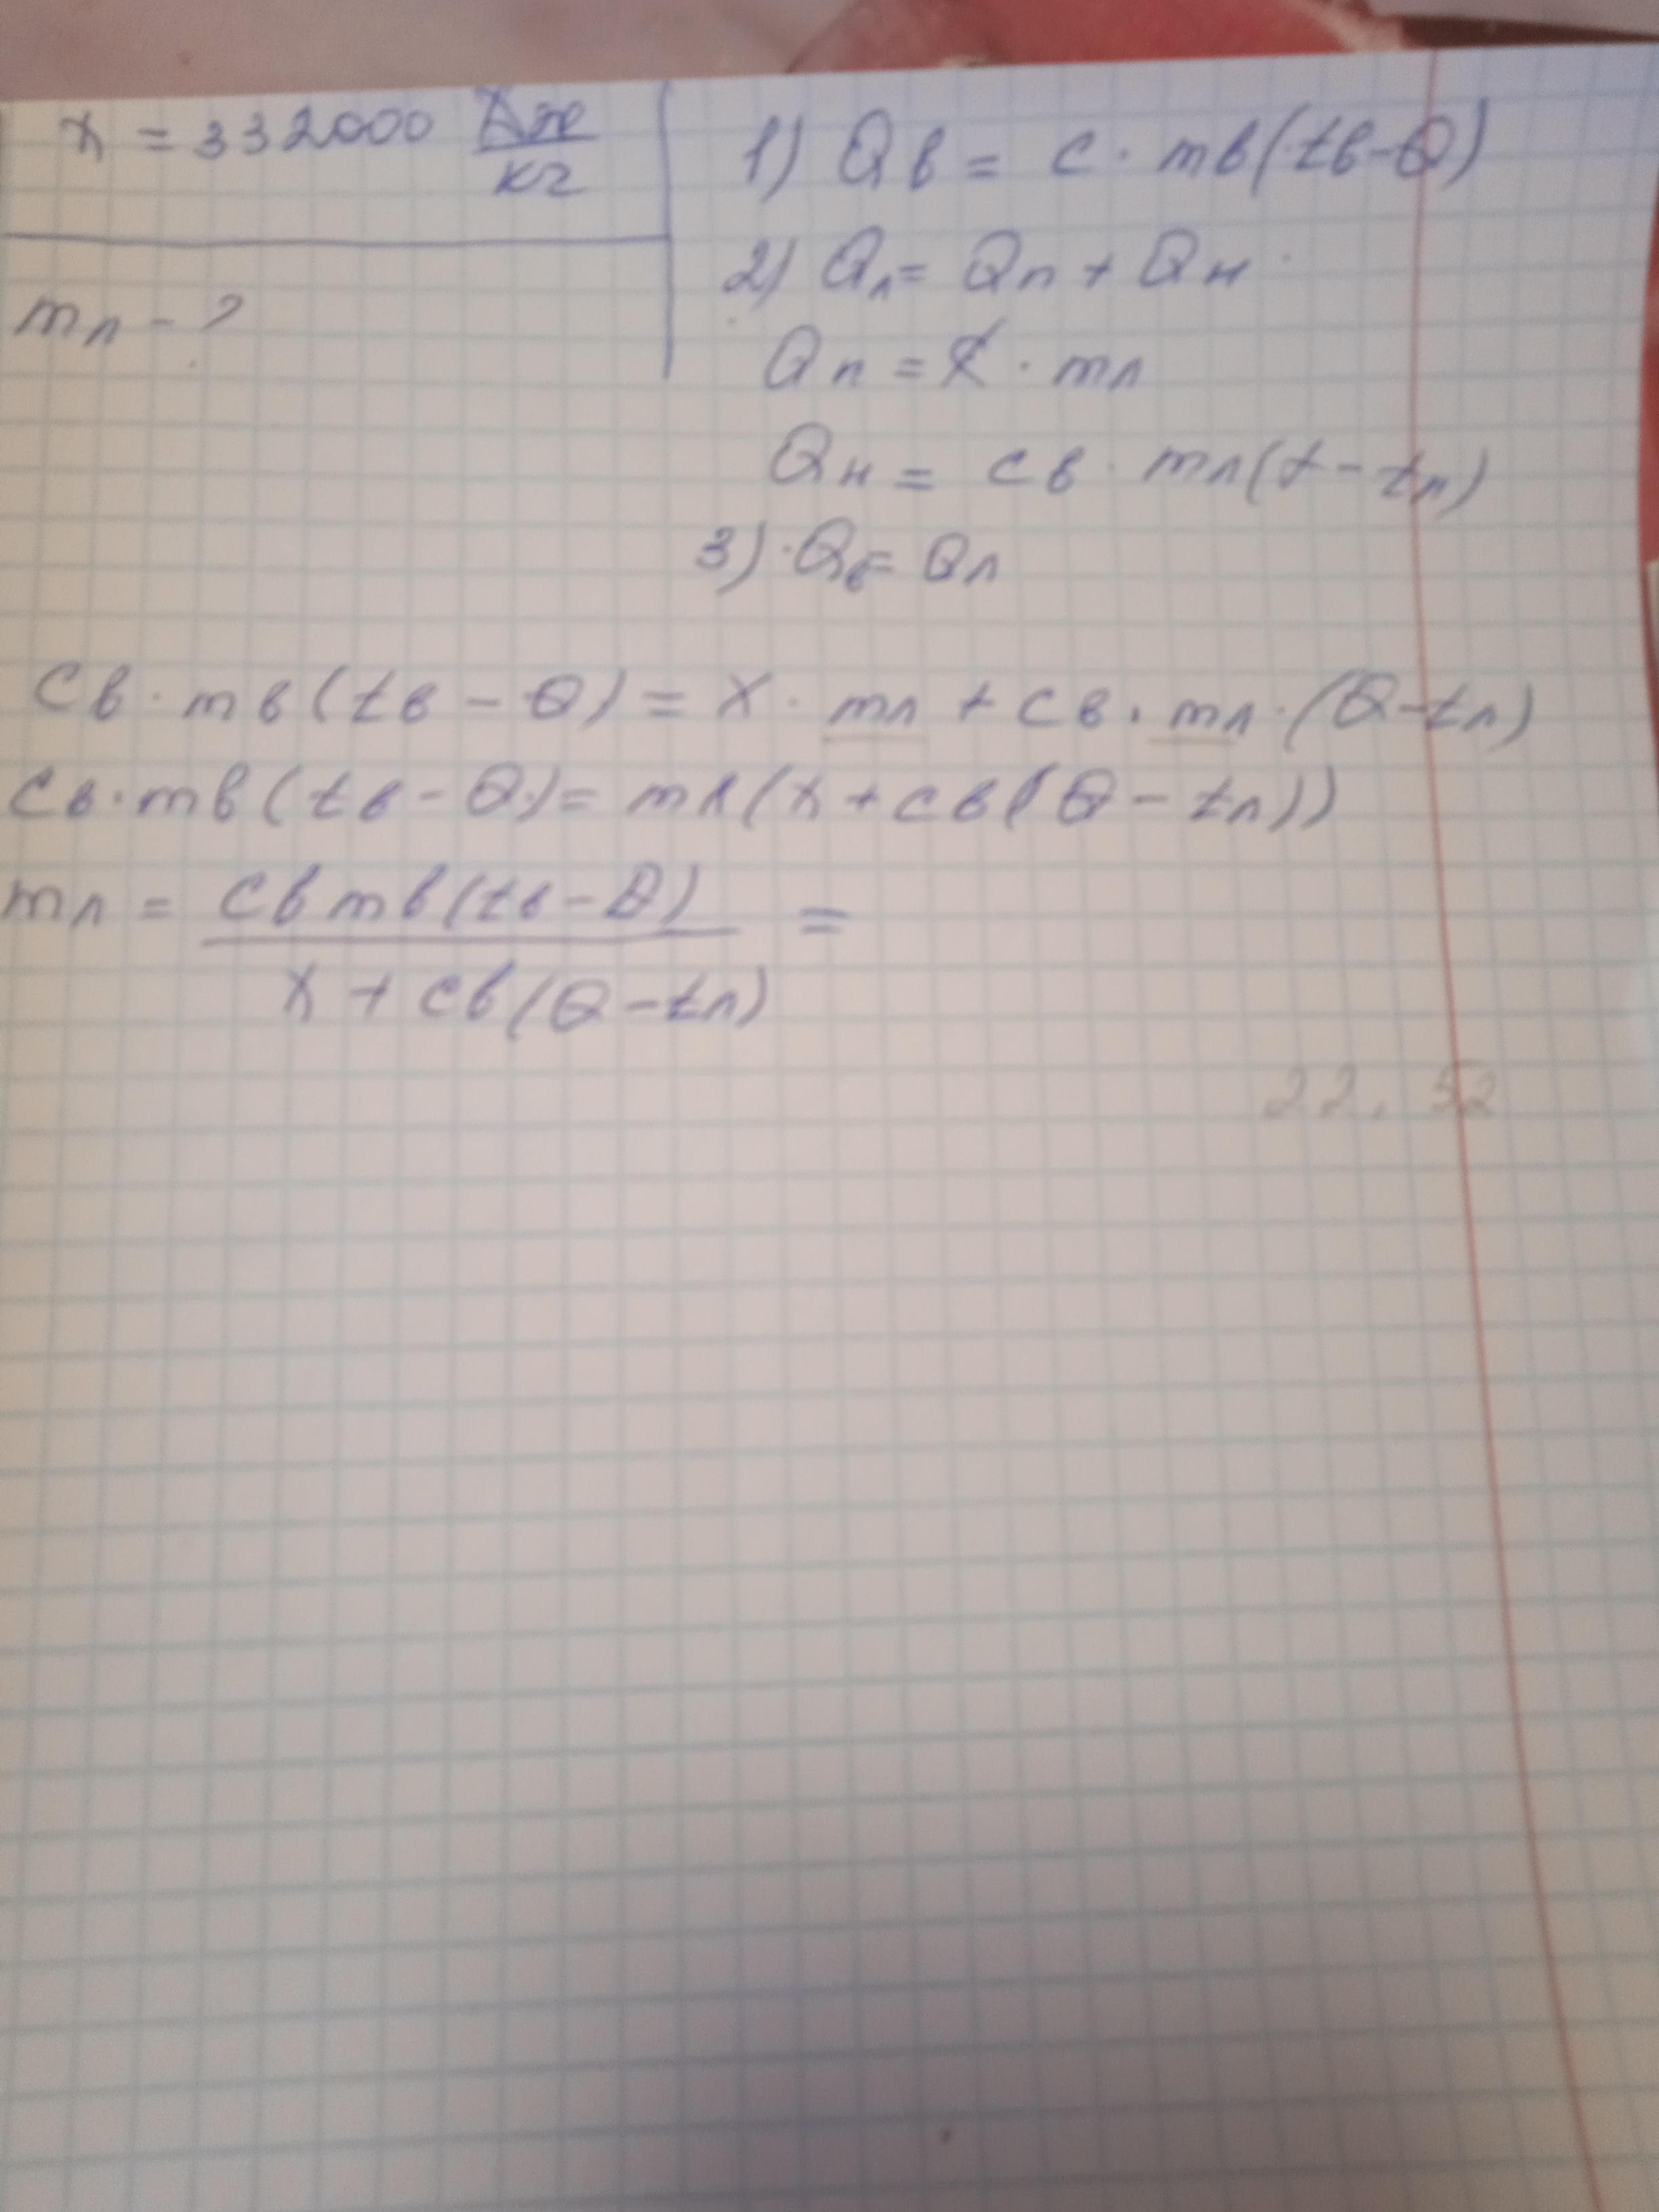 λ = 332000 Дж/кг
mл - ?
1) Qв = c · mв(tв-θ)
2) Qл = Qп + Qн
Qп = λ · mл
Qн = cв · mл(t - tл)
3) Qв = Qл
Cв · mв(tв - θ) = λ · mл + cв · mл · (θ - tл)
Cв · mв(tв - θ) = mл(λ + cв(θ - tл))
mл = Cв mв(tв - θ) / λ + cв(θ - tл) =
22. 52